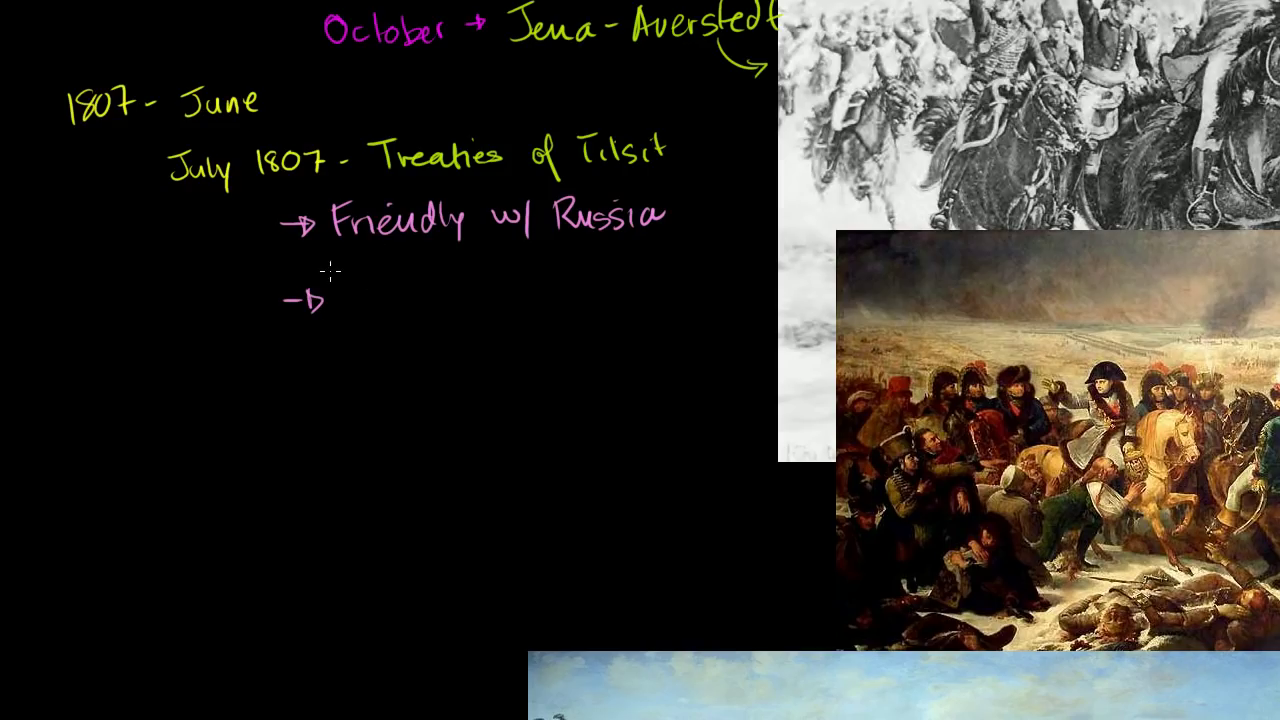 October → Jena - Averstedt
1807 - June
July 1807 - Treaties of Tilsit
→ Friendly w/ Russia
→